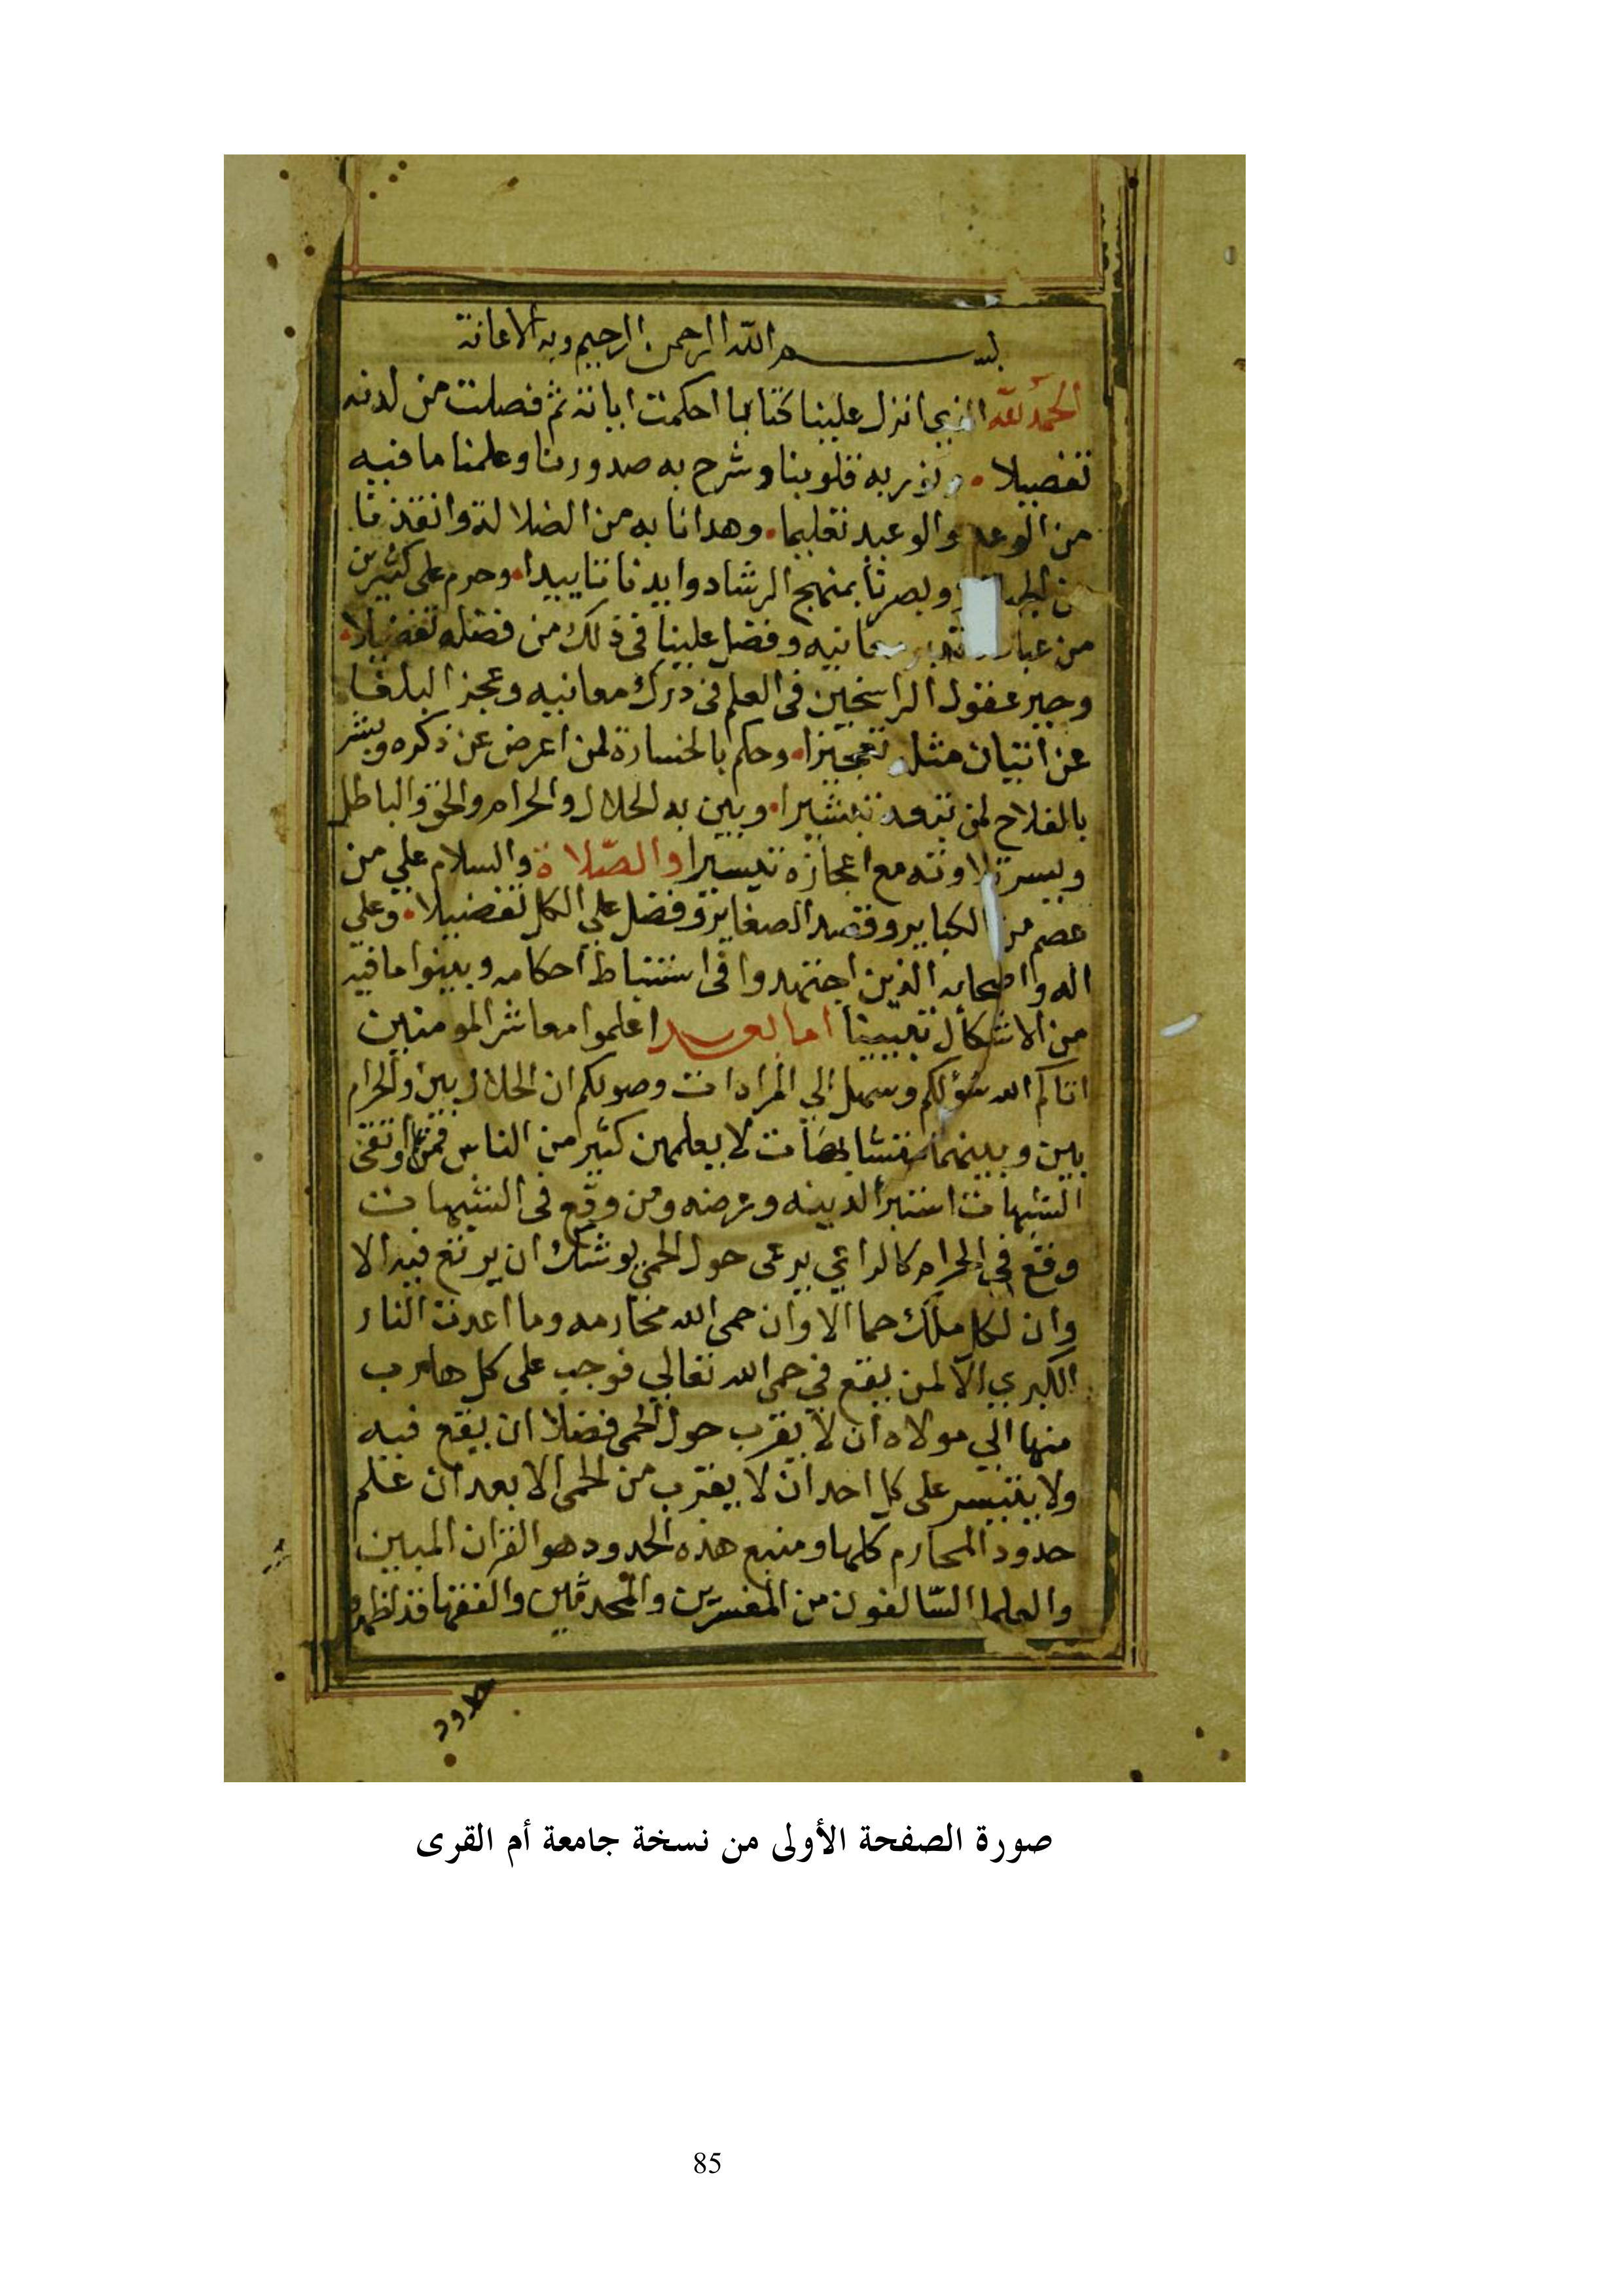 بسم الله الرحمن الرحيم وبه الاعانة
الحمد لله الذي انزل علينا كتابا احكمت اياته ثم فصلت من لدنه
تفصيلا ونور به قلوبنا وشرح به صدورنا وعلمنا ما فيه
من الوعد والوعيد تعليما وهدانا به من الضلالة وانقذنا
من وبصرنا بمنهج الرشاد وايدنا تاييدا وحرم على كثير من
من معانيه وفضل علينا في ذلك من فضله تفضيلا
وحير عقول الراسخين في العلم في درك معانيه وعجز البلغا
عن اتيان مثله تعجيزا وحكم بالخسارة لمن اعرض عن ذكره وبشر
بالفلاح لمن تبشيرا وبين به الحلال والحرام والحق والباطل
ويسر تلاوته مع اعجازه تيسيرا والصّلاة والسلام علي من
عصم من الكباير وقصد الصغاير وفضل علي الكل تفضيلا وعلي
اله واصحابه الذين اجتهدوا في استنباط احكامه وبينوا ما فيه
من الاشكال تبيينا اما بعد اعلموا معاشر المومنين
اتاكم الله سؤلكم وسهل الي المرادات وصولكم ان الحلال بين والحرام
بين وبينهما متشابهات لا يعلمهن كثير من الناس فمن اتقى
الشبهات استبرأ لدينه وعرضه ومن وقع في الشبهات
وقع في الحرام كالراعي يرعى حول الحمى يوشك ان يرتع فيه الا
وان لكل ملك حما الا وان حمى الله محارمه وما اعدت النار
الكبري الا لمن يقع في حمى الله تعالي فوجب على كل هارب
منها الي مولاه ان لا يقرب حول الحمى فضلا ان يقع فيه
ولا يتيسر على كل احد ان لا يقترب من الحمى الا بعد ان علم
حدود المحارم كلها ومنبع هذه الحدود هو القران المبين
والعلما السّالفون من المفسرين والمحدثين والفقها قد اظهروا
حدود
صورة الصفحة الأولى من نسخة جامعة أم القرى
85